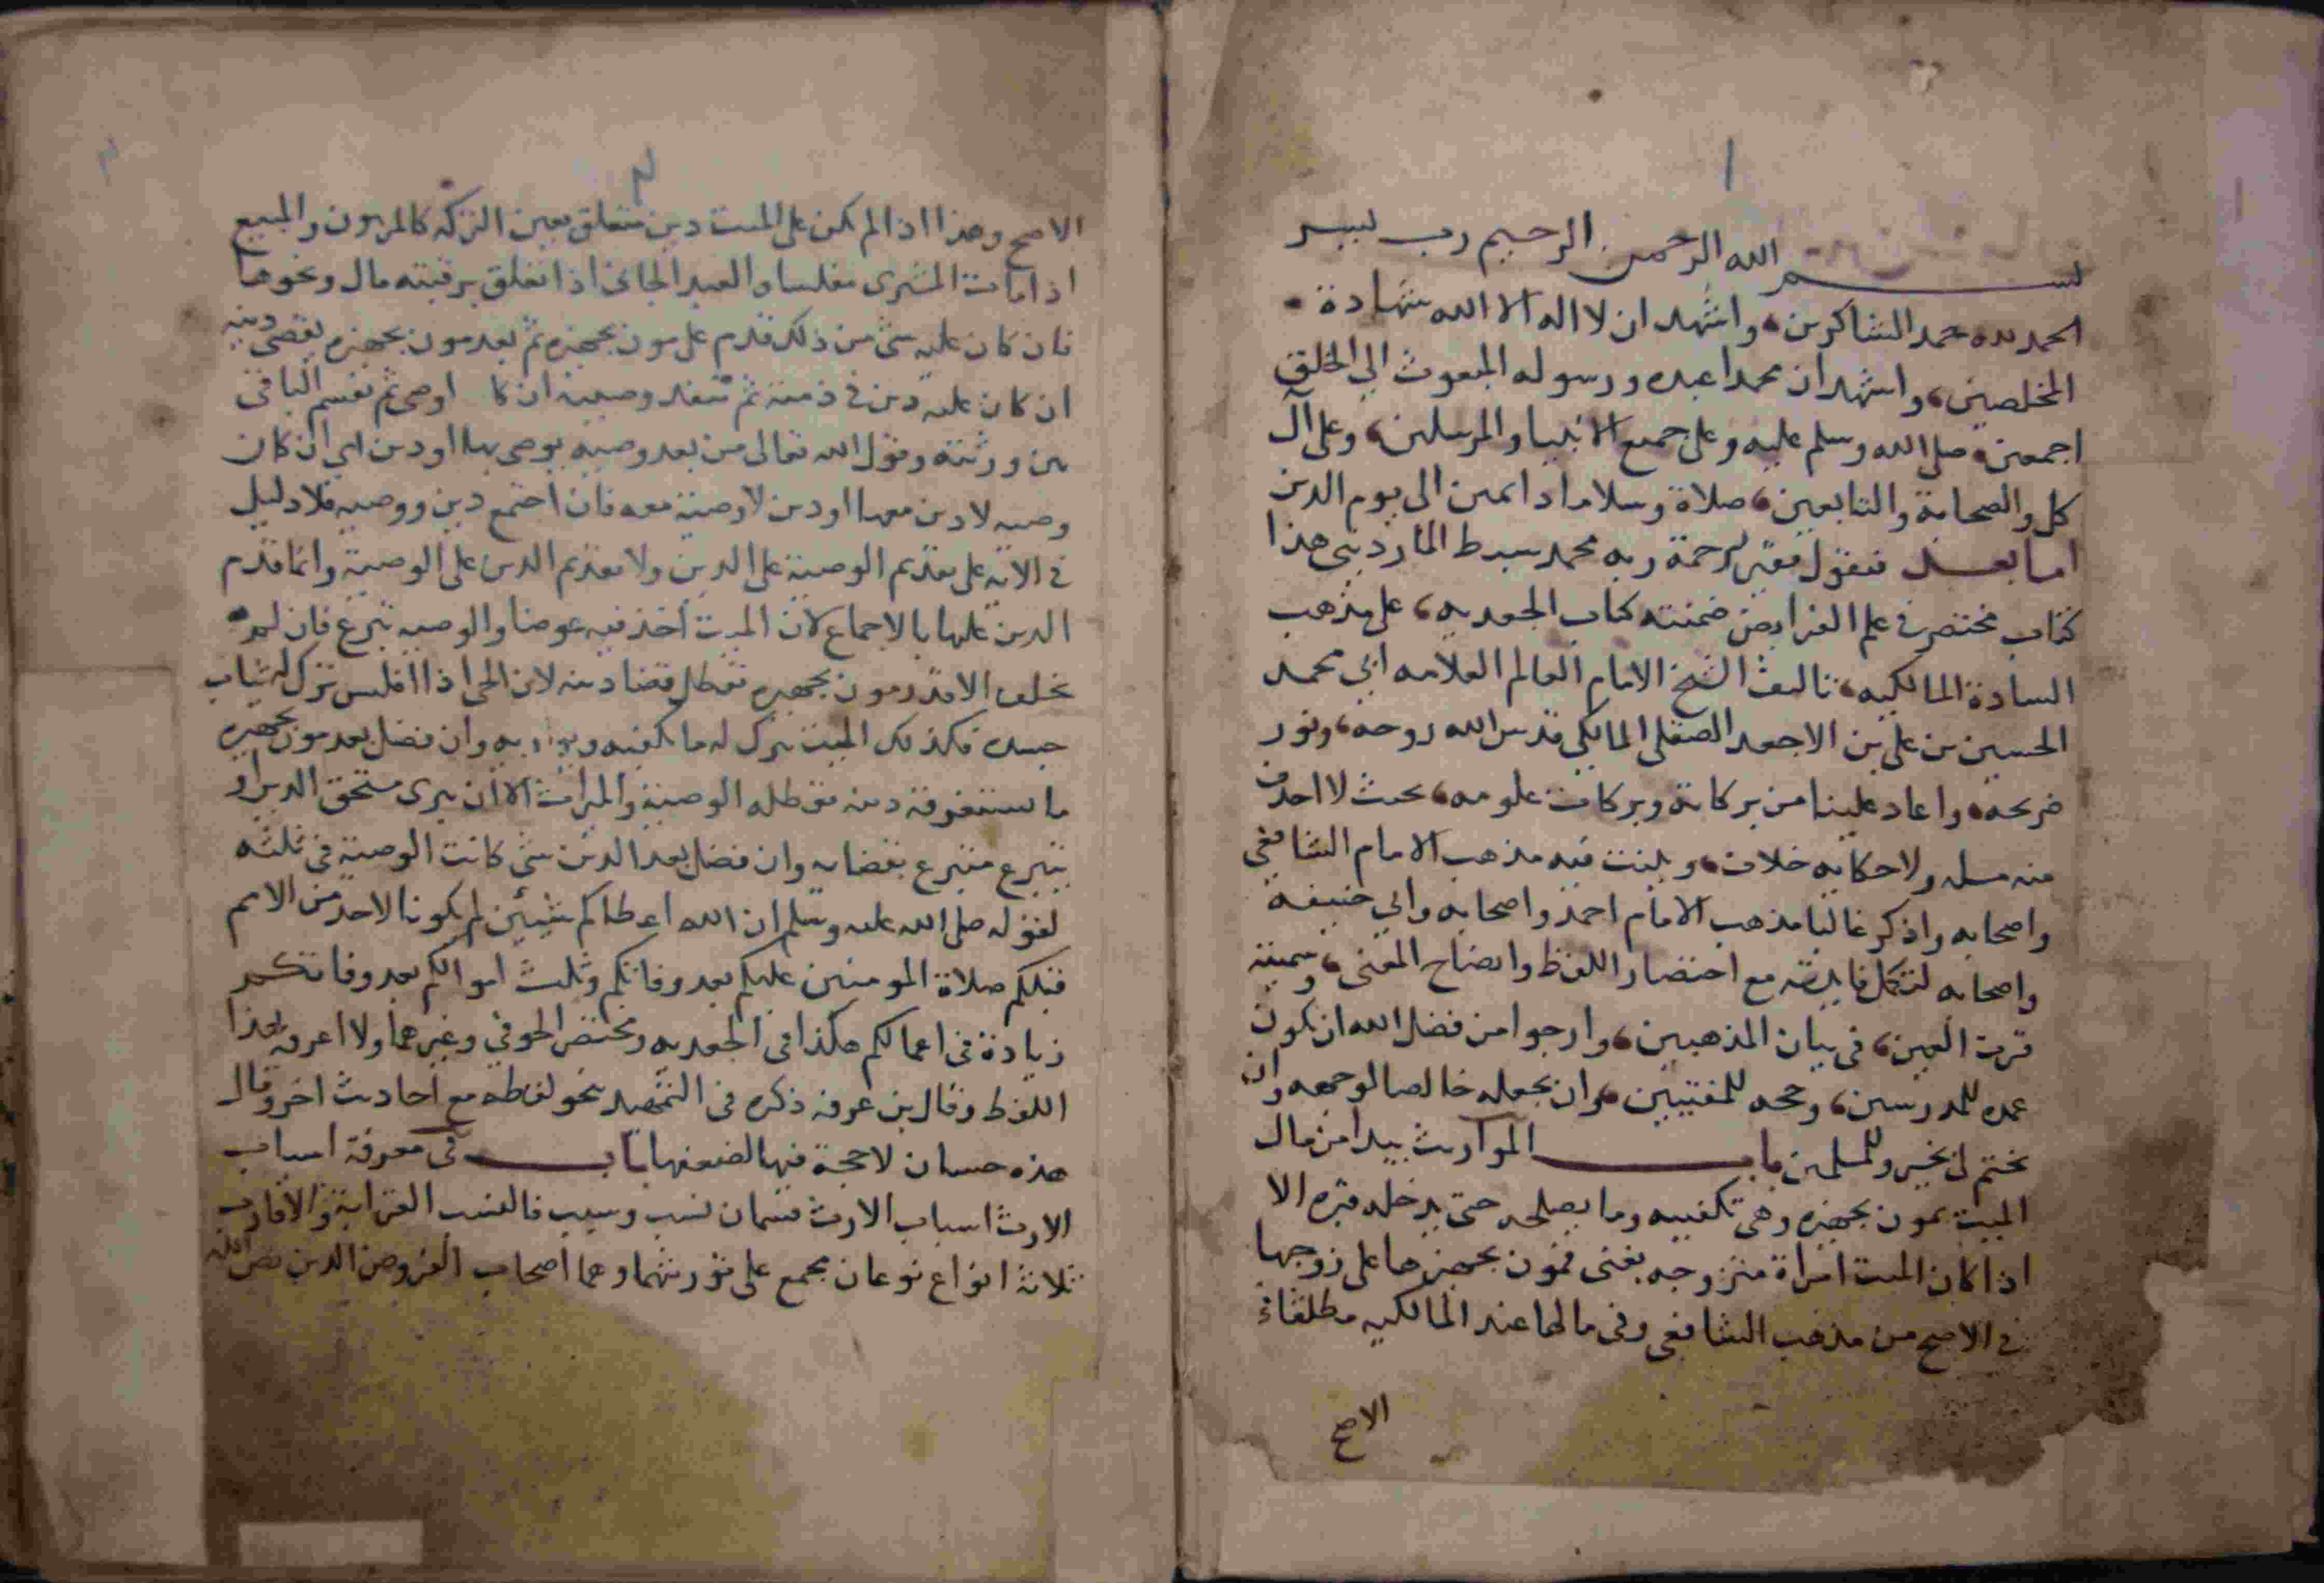 ١
بسم الله الرحمن الرحيم رب يسر
الحمد لله حمد الشاكرين، واشهد ان لا اله الا الله شهادة
المخلصين، واشهد ان محمدا عبده ورسوله المبعوث الي الخلق
اجمعين صلى الله وسلم عليه وعلى جميع الانبيا والمرسلين، وعلى آل
كل والصحابة والتابعين، صلاة وسلاما دائمين الى يوم الدين
اما بعد فيقول فقير رحمة ربه محمد سبط المارديني هذا
كتاب مختصر في علم الفرايض ضمنته كتاب الجعديه، على مذهب
السادة المالكيه، تاليف الشيخ الامام العالم العلامه ابي محمد
الحسين بن علي بن الاجعد الصقلي المالكي قدس الله روحه، ونور
ضريحه، واعاد علينا من بركاته وبركات علومه، بحيث لا احذف
منه مسله ولا حكايه خلاف، وبينت فيه مذهب الامام الشافعي
واصحابه واذكر غالبا مذهب الامام احمد واصحابه وابي حنيفة
واصحابه لتكمل فايدته مع اختصار اللفظ وايضاح المعنى، وسميته
قرت العين، في بيان المذهبين، وارجوا من فضل الله ان يكون
عمده للمدرسين، وحجه للمفتيين، وان يجعله خالصا لوجهه وان
يختم لي بخير وللمسلمين باب المواريث يبدا من مال
الميت بمون تجهيزه وهي تكفينه وما يصلحه حتى يدخله قبره الا
اذا كان الميت امراة متزوجه بغنى فمون تجهيزها على زوجها
في الاصح من مذهب الشافعي وفي مالها عند المالكيه مطلقا في
الاصح
٢
الاصح وهذا اذا لم يكن على الميت دين متعلق بعين التركه كالمرهون والمبيع
اذا مات المشترى مفلسا والعبد الجاني اذا تعلق برقبته مال ونحوها
فان كان عليه شي من ذلك قدم على مون تجهيزه ثم بعد مون تجهيزه يقضى دينه
ان كان عليه دين في ذمته ثم تنفذ وصيته ان كا اوصى ثم يقسم الباقي
بين ورثته وقول الله تعالى من بعد وصيه يوصي بها او دين اي ان كان
وصيه لا دين معها او دين لا وصية معه فان اجتمع دين ووصيه فلا دليل
في الايه على تقديم الوصية على الدين ولا تقديم الدين على الوصية وانما قدم
الدين عليها بالاجماع لان الميت اخذ فيه عوضا والوصيه تبرع فان لم
يخلف الا قدر مون تجهيزه تعطل قضا دينه لان الحي اذا افلس ترك له ثياب
جسده فكذلك الميت يترك له ما يكفنه ويواريه وان فضل بعد مون تجهيزه
ما يستغرقه دينه تعطله الوصية والميراث الا ان يبرى مستحق الدين او
يتبرع متبرع بقضايه وان فضل بعد الدين شي كانت الوصية في ثلثه
لقوله صلى الله عليه وسلم ان الله اعطاكم شيئين لم يكونا لاحد من الامم
قبلكم صلاة المومنين عليكم بعد وفاتكم وثلث اموالكم بعد وفاتكم
زيادة في اعمالكم هكذا في الجعديه ومختصر الحوفي وغيرهما ولا اعرفه بهذا
اللفظ وقال بن عرفه ذكره في التمهيد نحو لفظه مع احاديث اخر وقال
هذه حسان لا حجة فيها لضعفها باب في معرفة اسباب
الارث اسباب الارث قسمان نسب وسبب فالنسب القرابة والاقارب
ثلاثة انواع نوعان مجمع على توريثهما وهما اصحاب الفروض الذين نص الله